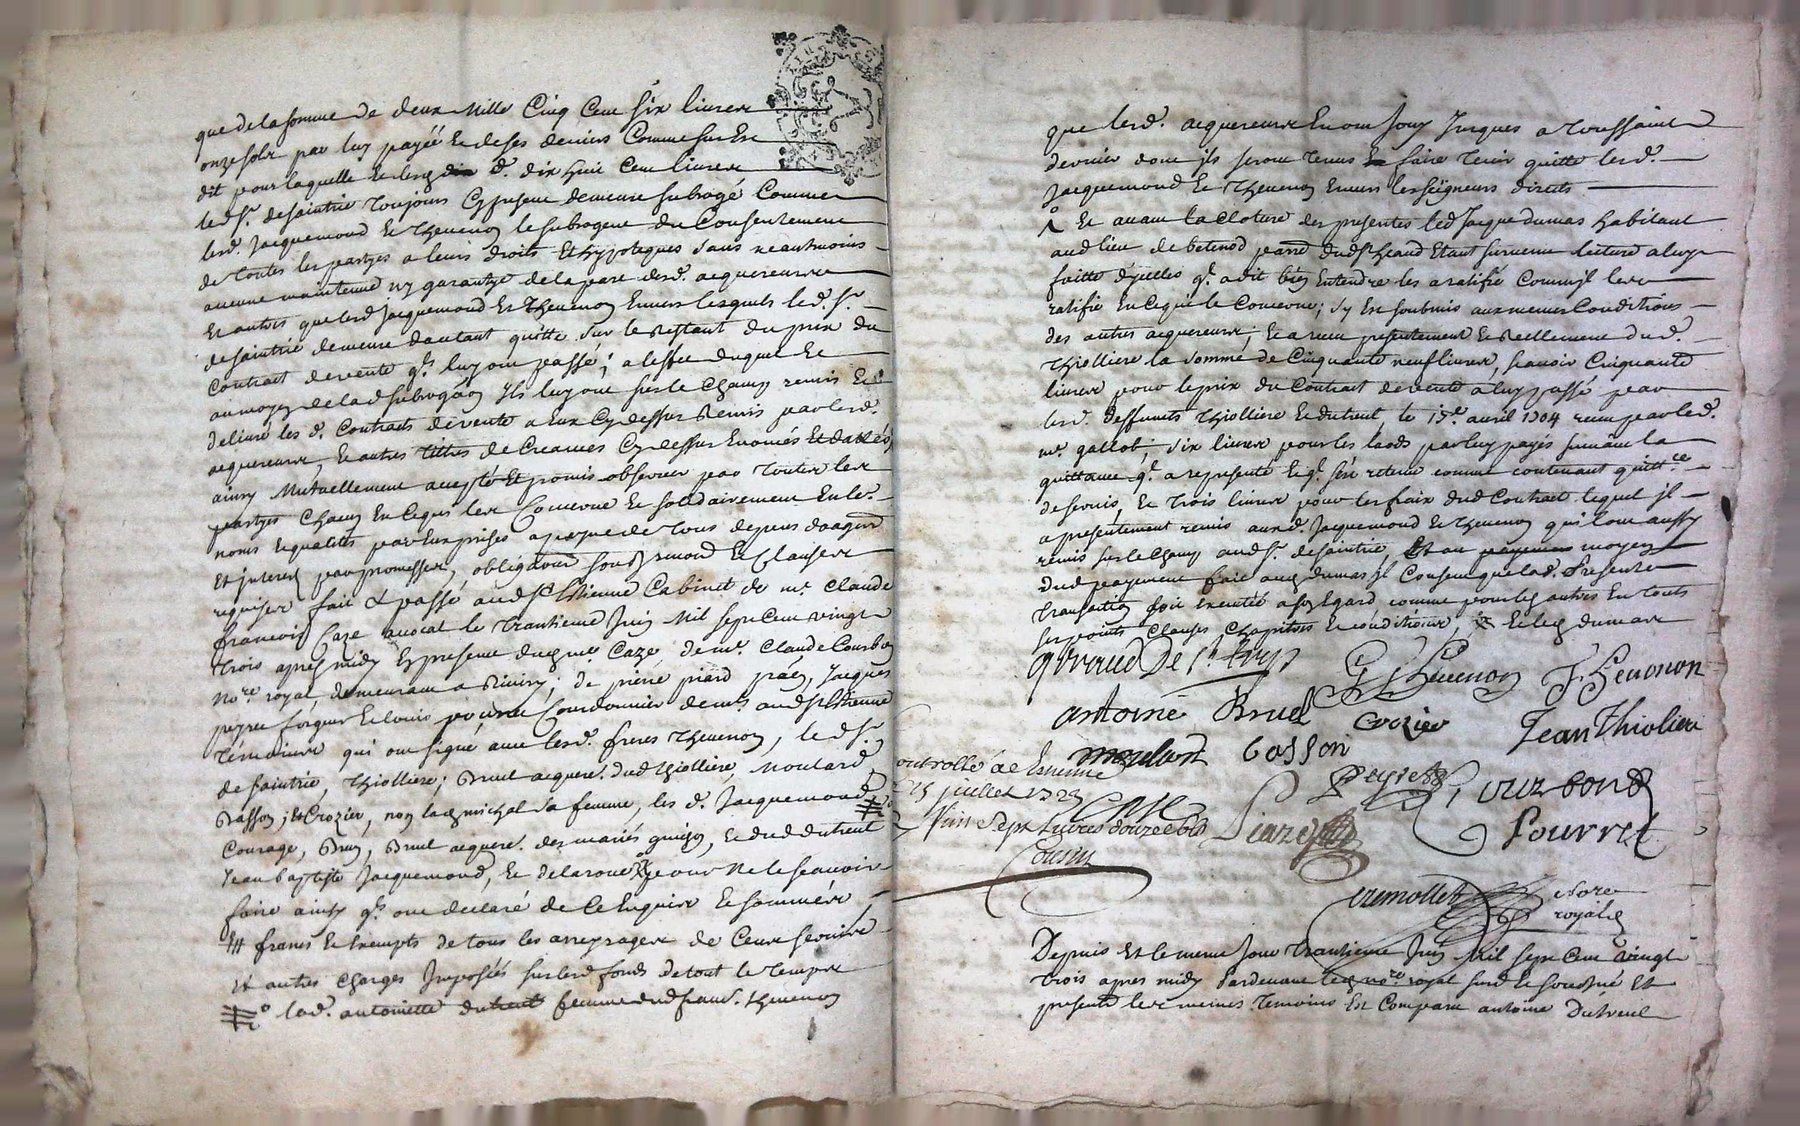 que de la somme de deux mille Cinq Cent six livres
onze sols par luy payéé Et de ses deniers Comme sus Est
dit pour laquelle Et lesq. d. dix huit Cent livres
led. Sr. desaintrie toujours Cy present demeure subrogé Comme
lesd. Jacquemond Et thevenon le subrogent du Consentement
de toutes les partyes a leurs droits Et hypoteques sans neantmoins
aucune maintenue ny garantye de la part desd. acquereurs
Et autres que lesd. Jacquemond Et thevenon Envers lesquels led. Sr.
desaintrie demeure dautant quitte sur le Restant du prix du
Contract de vente qls. luy ont passé; a leffet duquel Et
au moyen de lad subrogaon Ils luy ont sur le Champ remis Et
delivré les d. Contracts de vente a Eux Cy dessus Remis par lesd.
acquereurs, Et autres tittres de Creances Cy dessus Enoncés Et dattés
ainsy Mutuellement accepté Et promis observer par toutes les
partyes Chacun En ce qui les Concerne Et solidairement En les.
noms Equalités par Eux prises a peyne de tous depens domages
Et interets par promesses, obligaons sous Et Clauses
requises fait & passé aud St Etienne Cabinet de me. Claude
francois Caze avocat le trantieme Juin Mil sept Cent vingt
trois aprés midy Et presence dud me. Caze de me. Claude Courbon
nore. royal demeurant a ; de pierre piard , Jacques
peyret forgeur Et louis Cordonnier demts. aud St Etienne
témoins qui ont signé avec lesd. freres thevenon, led. Sr.
desaintrie, thiolliere; Bruel acquer. dud thiolliere, Moulard
Basson; Et Crozier, non lad michal sa femme, les d. Jacquemond
Courage, Bruel acquer. des mariés guigon, Et dud dutreul
Jean baptiste Jacquemond, Et delaroue pour Ne le scavoir
faire ainsy qls. ont declaré de Ce Enquis Et sommés
francs Et Exempts de tous les arreyrages de Ceux servis
Et autres Charges Imposéés sur lesd fonds de tout le temps
lad. antoinette dutreul femme dud franc. thevenon
que lesd. acquereurs En ont Jouy Jusques a toussaint
dernier dont ils seront tenus faire tenir quitte lesd.
Jacquemond Et thevenon Envers les seigneurs directs
Et avant la Cloture des presentes led Jacque dumas habitant
aud lieu de betenod parr. dud St heand Etant survenu lecture a luy
faitte dycelles ql. a dit bien Entendre les a ratifié Comm jl les
ratifie En Ce qui le Concerne; sy Est soubmis aux memes Conditions
des autres acquereurs; Et a receu presentement Et Reellement dud.
thiolliere la somme de Cinquante neuf livres, scavoir Cinquante
livres pour le prix du Contract de vente a luy passé par
lesd. deffunts thiolliere Et dutreul le 15e. avril 1704 receu par led.
me. gallot; six livres pour les laods par luy payés suivant la
quittance ql. a representé Et ql. sen retenu comme contenant quittce.
de servis, Et trois livres pour les fraix dud Contract lequel jl
a presentement remis auxd. Jacquemond Et thevenon qui lont aussy
remis sur le Champ aud Sr. desaintrie, Et au moyen
dud payement fait aud dumas jl Consent que lad. presente
transaction soit Executée a son Egard comme pour les autres En touts
ses points Clauses Chapitres Et conditions, Et led dumas
Thevenon
F Thevenon
antoine Bruel
Crozier
Jean Thioliere
moulard
basson
Peyret
Courbond
Caze
Pourret
Controllé a St Estienne
15 juillet 1723
sept livres douze sols
Cousin
Cremollet
Nore
royal
Depuis Et le meme Jour trantieme Juin Mil sept Cent vingt
trois apres midy Pardevant led nore. royal susd. Et soussigné Et
presents les memes temoins Est Comparu antoine Dutreul